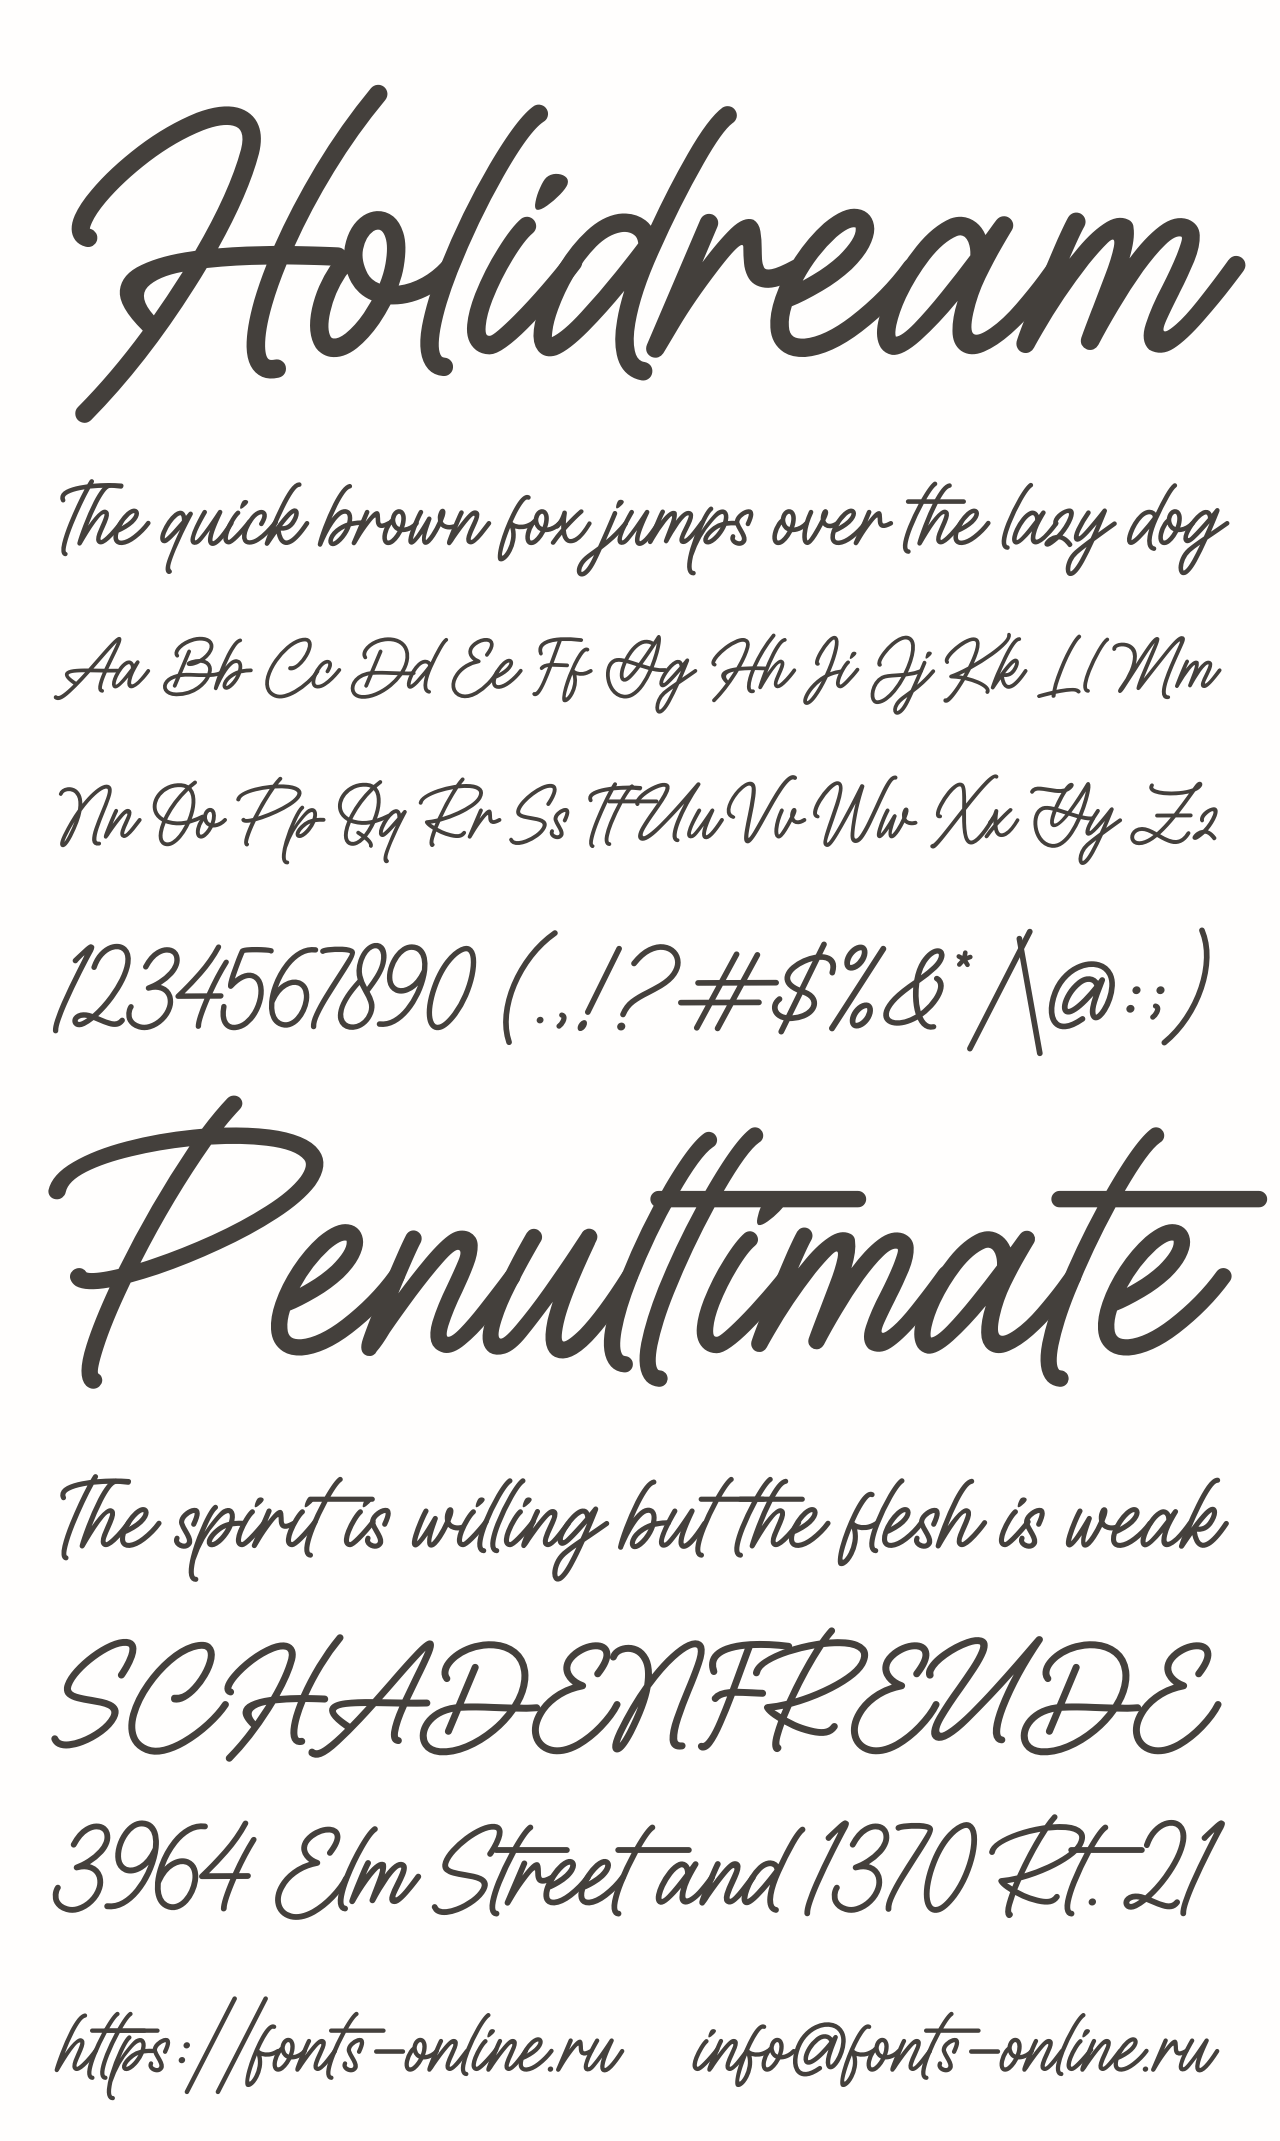 Holidream
The quick brown fox jumps over the lazy dog
Aa Bb Cc Dd Ee Ff Gg Hh Ii Jj Kk Ll Mm
Nn Oo Pp Qq Rr Ss Tt Uu Vv Ww Xx Yy Zz
1234567890 (.,!?#$%&*/\@:;)
Penultimate
The spirit is willing but the flesh is weak
SCHADENFREUDE
3964 Elm Street and 1370 Rt. 21
https://fonts-online.ru info@fonts-online.ru